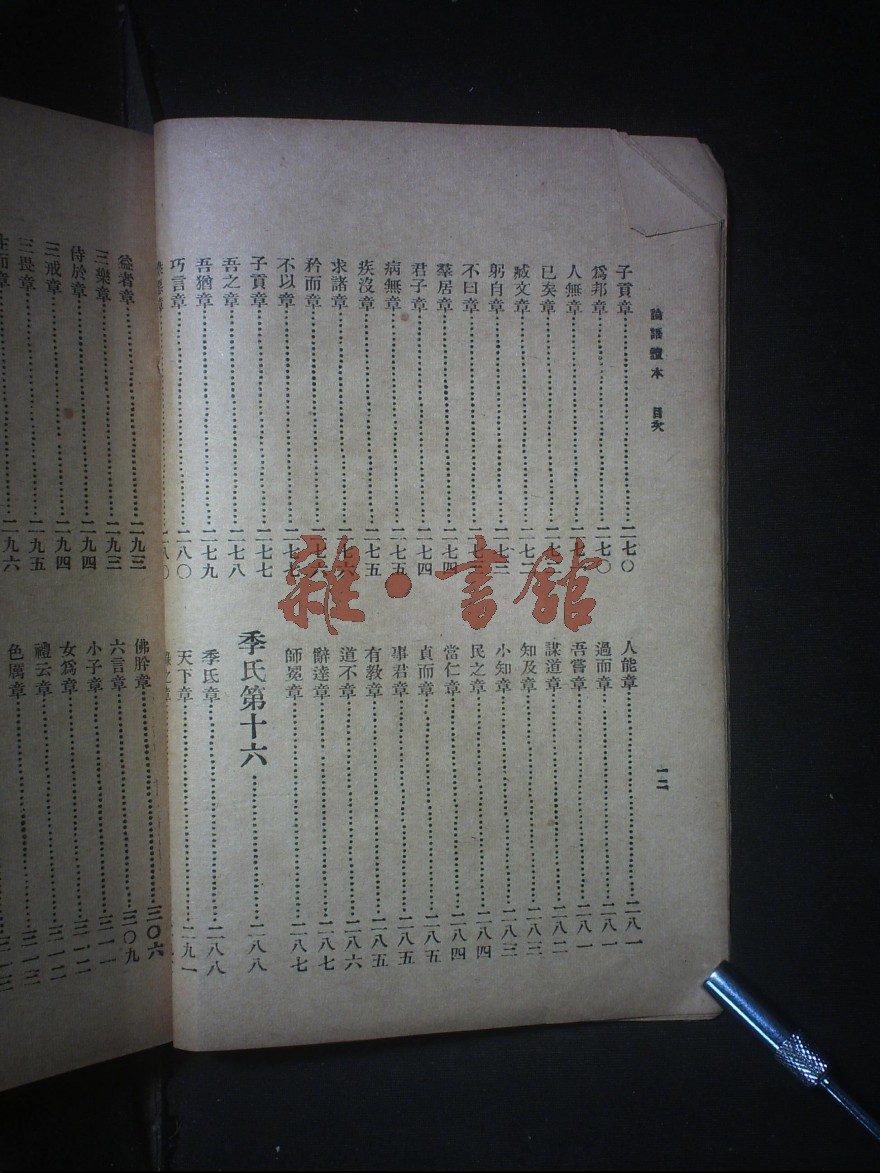 論語讀本 目次
一二
子貢章……二七〇
爲邦章……二七〇
人無章……二七一
已矣章
臧文章……二七二
躬自章
不曰章
羣居章……二七四
君子章……二七四
病無章……二七五
疾沒章……二七五
求諸章……二七六
矜而章……二七六
不以章……二七七
子貢章……二七七
吾之章……二七八
吾猶章……二七九
巧言章……二八〇
人能章……二八一
過而章……二八一
吾嘗章……二八一
謀道章……二八二
知及章……二八三
小知章……二八三
民之章……二八四
當仁章……二八四
貞而章……二八五
事君章……二八五
有教章……二八五
道不章……二八六
辭達章……二八七
師冕章……二八七
季氏第十六……二八八
季氏章……二八八
天下章……二九一
益者章……二九三
三樂章……二九三
侍於章……二九四
三戒章……二九四
三畏章……二九五
生而章……二九六
佛肸章……三〇六
六言章……三〇九
小子章……三一一
女爲章……三一二
禮云章……三一二
色厲章……三一三
雜·書館